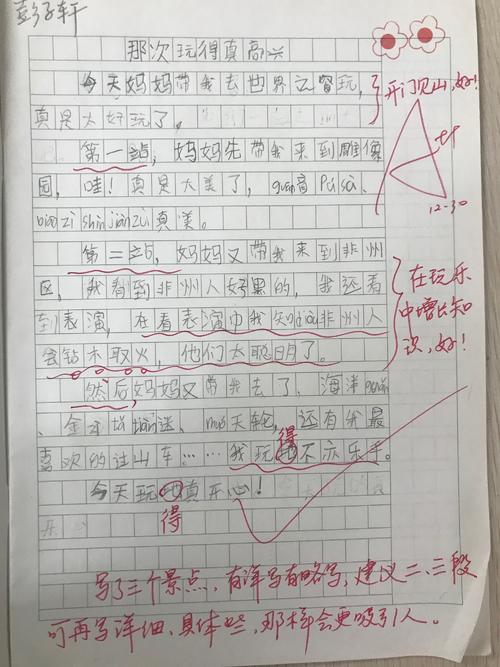 彭子轩
那次玩得真高兴
今天妈妈带我去世界之窗玩，
真是太好玩了。
开门见山，好！
第一站，妈妈先带我来到雕像
园，哇！真是太美了，guān音Púsà、
真美。
12-30
第二站，妈妈又带我来到非州
区，我看到非州人好黑的，我还看
到表演，在看表演中我知dào非州人
会钻木取火，他们太聪明了。
在玩乐
中增长知
识，好！
然后妈妈又带我去了，海洋
、金字塔 、mó天轮，还有我最
喜欢的过山车……我玩得不亦乐乎。
今天玩地真开心！
得
写了三个景点，有详写有略写，建议二、三段
可再写详细、具体些，那样会更吸引人。